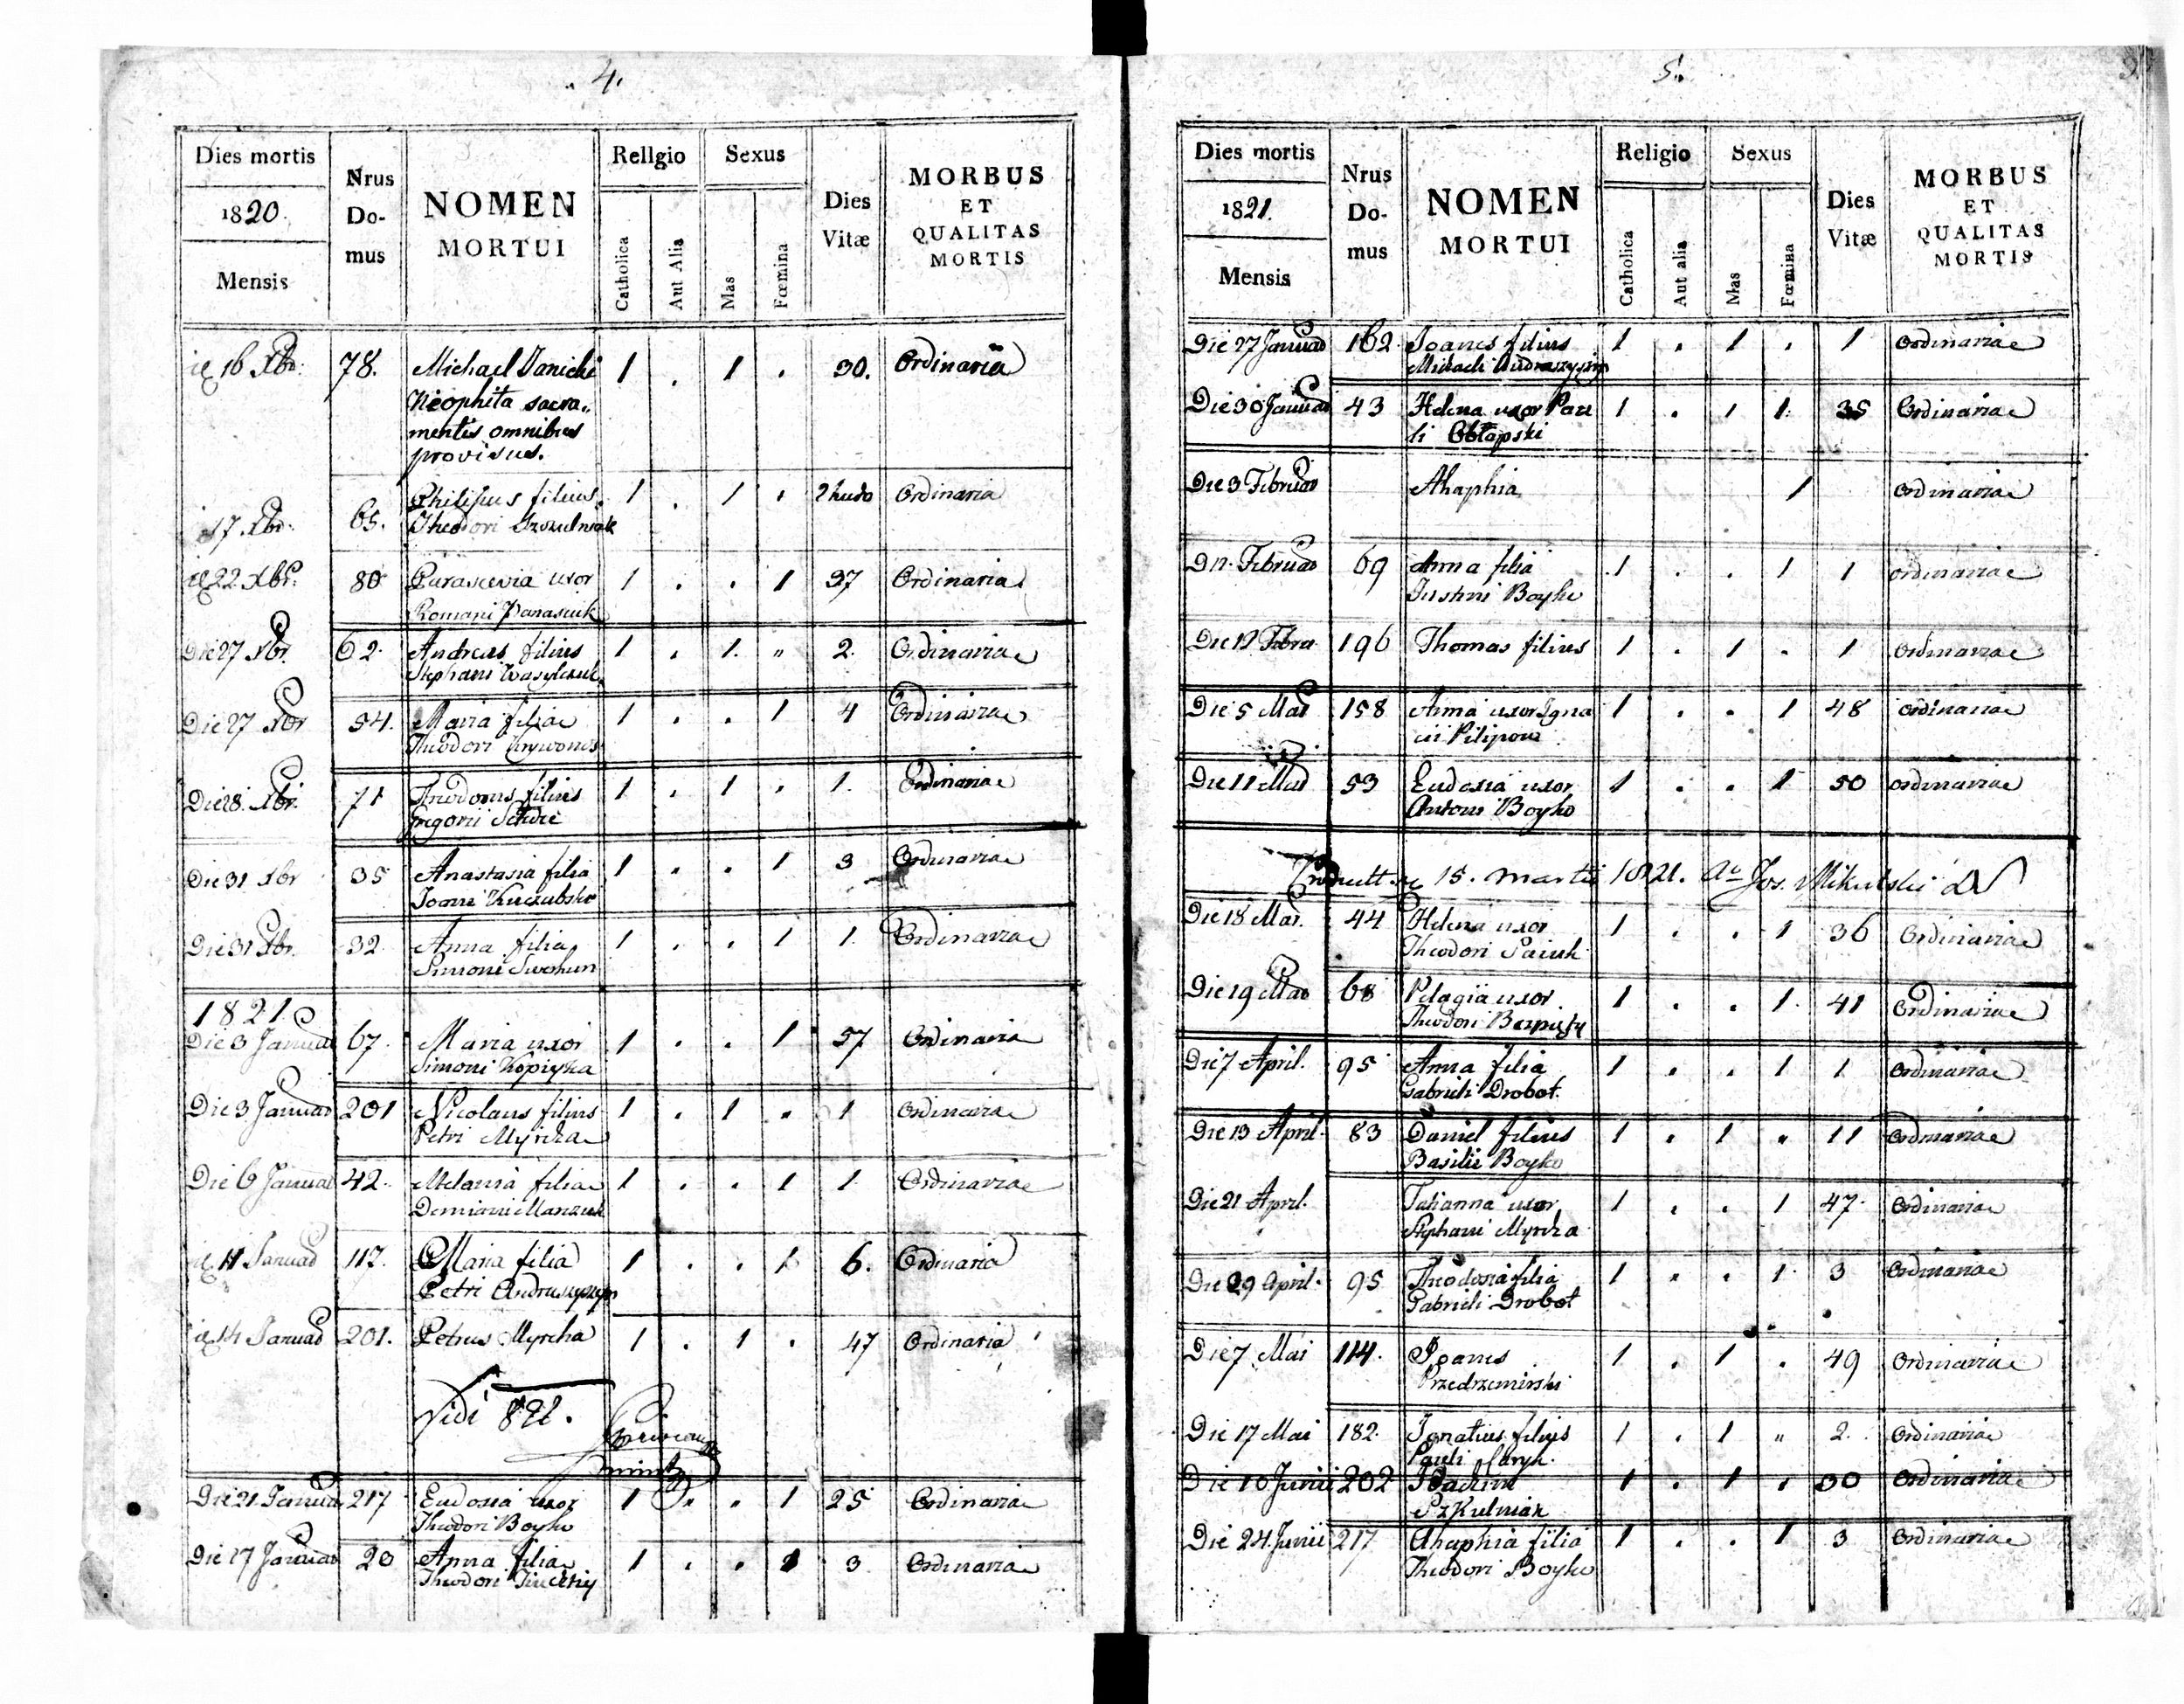 4.
Dies mortis
1820.
Mensis
Nrus Do- mus
NOMEN
MORTUI
Rellgio
Catholica
Aut Alia
Sexus
Mas
Fœmina
Dies
Vitæ
MORBUS
ET
QUALITAS
MORTIS
16 Xbr. 78. Michael Danichi 1 . 1 . 30. Ordinaria
Neophita sacra„
mentis omnibus
provisus.
17. Xbr. 65. Philipus filius 1 . 1 . Ordinaria
Theodori
22. Xbr. 80 Parascevia uxor 1 . . 1 37 Ordinaria
Romani Panasiuk
Die 27 Xbr. 62. Andreas filius 1 . 1. „ 2. Ordinaria
Stephani Wasylczuk
Die 27 Xbr 54. Maria filia 1 . . 1 4 Ordinaria
Theodori Krywonos
Die 28. Xbr. 71 Theodorus filius 1 . 1 . 1. Ordinaria
Gregorii
Die 31 Xbr 35 Anastasia filia 1 . . 1 3 Ordinaria
Joanni
Die 31 Xbr. 32 Anna filia 1 . . 1 1. Ordinaria
Simoni
1821.
Die 3 Januar 67. Maria uxor 1 . . 1 57 Ordinaria
Simoni Kopryka
Die 3. Januar 201 Nicolaus filius 1 . 1 . 1 Ordinaria
Petri Myrcha
Die 6 Januar 42. Melania filia 1 . . 1 1. Ordinaria
Demiani
11 Januar 117. Maria filia 1 . . 1. 6. Ordinaria
Petri Andruszyszyn
14 Januar 201. Petrus Myrcha 1 . 1 . 47 Ordinaria
Vidi 821.
Die 21. Januar 217 Eudosia uxor 1 . . 1 25 Ordinaria
Theodori Boyko
Die 27 Januar 20 Anna filia 1 . . 1 3 Ordinaria
Theodori
5.
Dies mortis
1821.
Mensis
Nrus Do- mus
NOMEN
MORTUI
Religio
Catholica
Aut alia
Sexus
Mas
Fœmina
Dies
Vitæ
MORBUS
ET
QUALITAS
MORTIS
Die 27 Januar 162. Joanes filius 1 . 1 . 1 Ordinaria
Michaeli
Die 30 Januar 43 Helena uxor Pau 1 . 1 1. 35 Ordinaria
li Obłapski
Die 3 Februar Ahaphia 1 Ordinaria
Februar 69 Anna filia 1 . . 1 1 ordinaria
Justini Boyko
Die 12 Febru 196 Thomas filius 1 . 1 . 1 Ordinaria
Die 5 Mar 158 Anna uxor Igna 1 . . 1 48 ordinaria
cii Pilipow
Die 11 Mar 53 Eudosia uxor 1 . . 1 50 ordinaria
Antoni Boyko
15. martii 1821. Jos. Mikulski
Die 18 Mar. 44 Helena uxor 1 . . 1 36 Ordinaria
Theodori
Die 19 Mar 68 Pelagia uxor 1 . . 1. 41 Ordinaria
Theodori
Die 7 April. 95 Anna filia 1 . . 1 1 Ordinaria
Gabrieli Drobot.
Die 13 April. 83 Daniel filius 1 . 1 „ 11 Ordinaria
Basilii Boyko
Die 21 April. Tatianna uxor 1 . . 1 47. Ordinaria
Stephani Myrcha
Die 29 April. 95 Theodosia filia 1 . . 1. 3 Ordinaria
Gabrieli Drobot
Die 7 Mai 114. Joanes 1 . 1 . 49 Ordinaria
Przedrzemirski
Die 17 Mai 182. Ignatius filius 1 . 1 „ 2. Ordinaria
Pauli
Die 10 Junii 202 1 . 1 . 30 Ordinaria
Szkulniak
Die 24 Junii 217 Ahaphia filia 1 . . 1 3 Ordinaria
Theodori Boyko